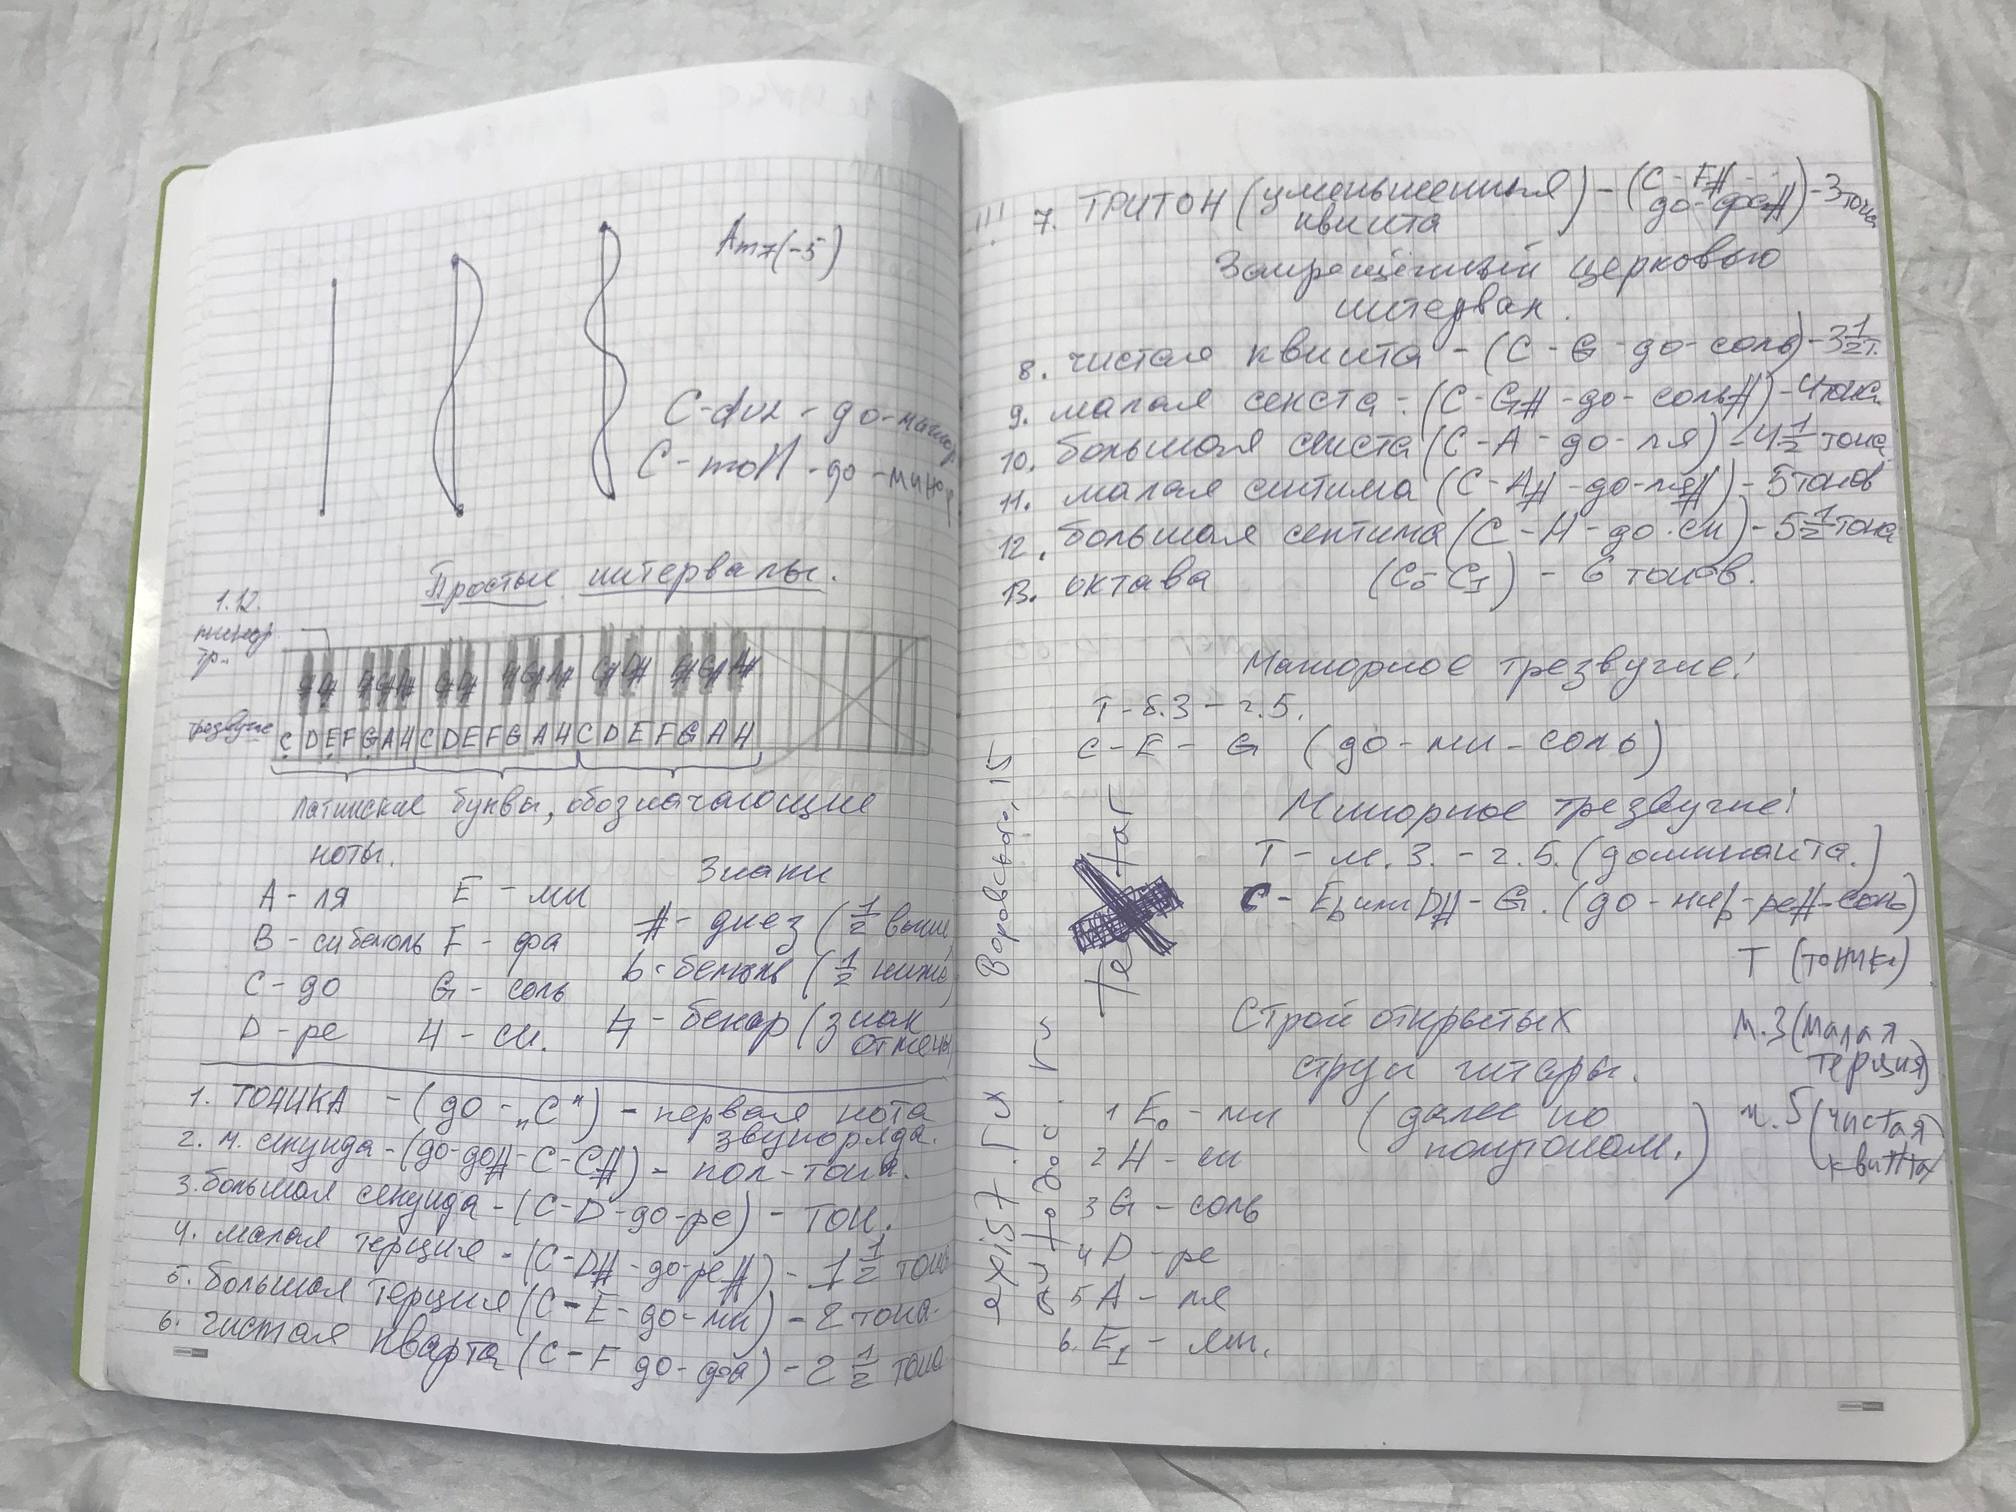 Am7(-5)
C-dur - до-мажор
C-moll - до-минор
Простые интервалы.
1.12.
минор.
тр.
C# D# F# G# A# C# D# F# G# A# C# D# F# G# A#
трезвучие
C D E F G A H C D E F G A H C D E F G A H
латинские буквы, обозначающие
ноты.
Знаки
A - ля
E - ми
# - диез (1/2 выше)
B - си бемоль
F - фа
b - бемоль (1/2 ниже)
C - до
G - соль
♮ - бекар (знак
отмены)
D - ре
H - си.
1. ТОНИКА - (до - „C") - первая нота
звукоряда.
2. м. секунда - (до-до# - C-C#) - пол-тона.
3. большая секунда - (C-D - до-ре) - тон.
4. малая терция - (C-D# - до-ре#) - 1 1/2 тона
5. большая терция (C-E - до-ми) - 2 тона.
6. чистая кварта (C-F до-фа) - 2 1/2 тона
!!! 7. ТРИТОН (уменьшенная
квинта) - (C - F#
до-фа#) - 3 тона
Запрещённый церковью
интервал.
8. чистая квинта - (C - G - до-соль) - 3 1/2 т.
9. малая секста - (C-G# - до - соль#) - 4 тона
10. большая секста (C-A - до - ля) - 4 1/2 тона
11. малая септима (C-A# - до-ля#) - 5 тонов
12. большая септима (C - H - до-си) - 5 1/2 тона
13. октава (C0 - C1) - 6 тонов.
Мажорное трезвучие!
Т - б.3 - ч.5.
C - E - G (до-ми-соль)
Минорное трезвучие!
Т - м.3. - ч.5. (доминанта.)
C - Eb или D# - G. (до-миb-ре#-соль)
Т (тоника)
м.3 (малая
терция)
ч.5 (чистая
квинта)
Строй открытых
струн гитары.
1 E0 - ми (далее по
полутонам.)
2 H - си
3 G - соль
4 D - ре
5 A - ля
6. E1 - ми.
Воровского, 15